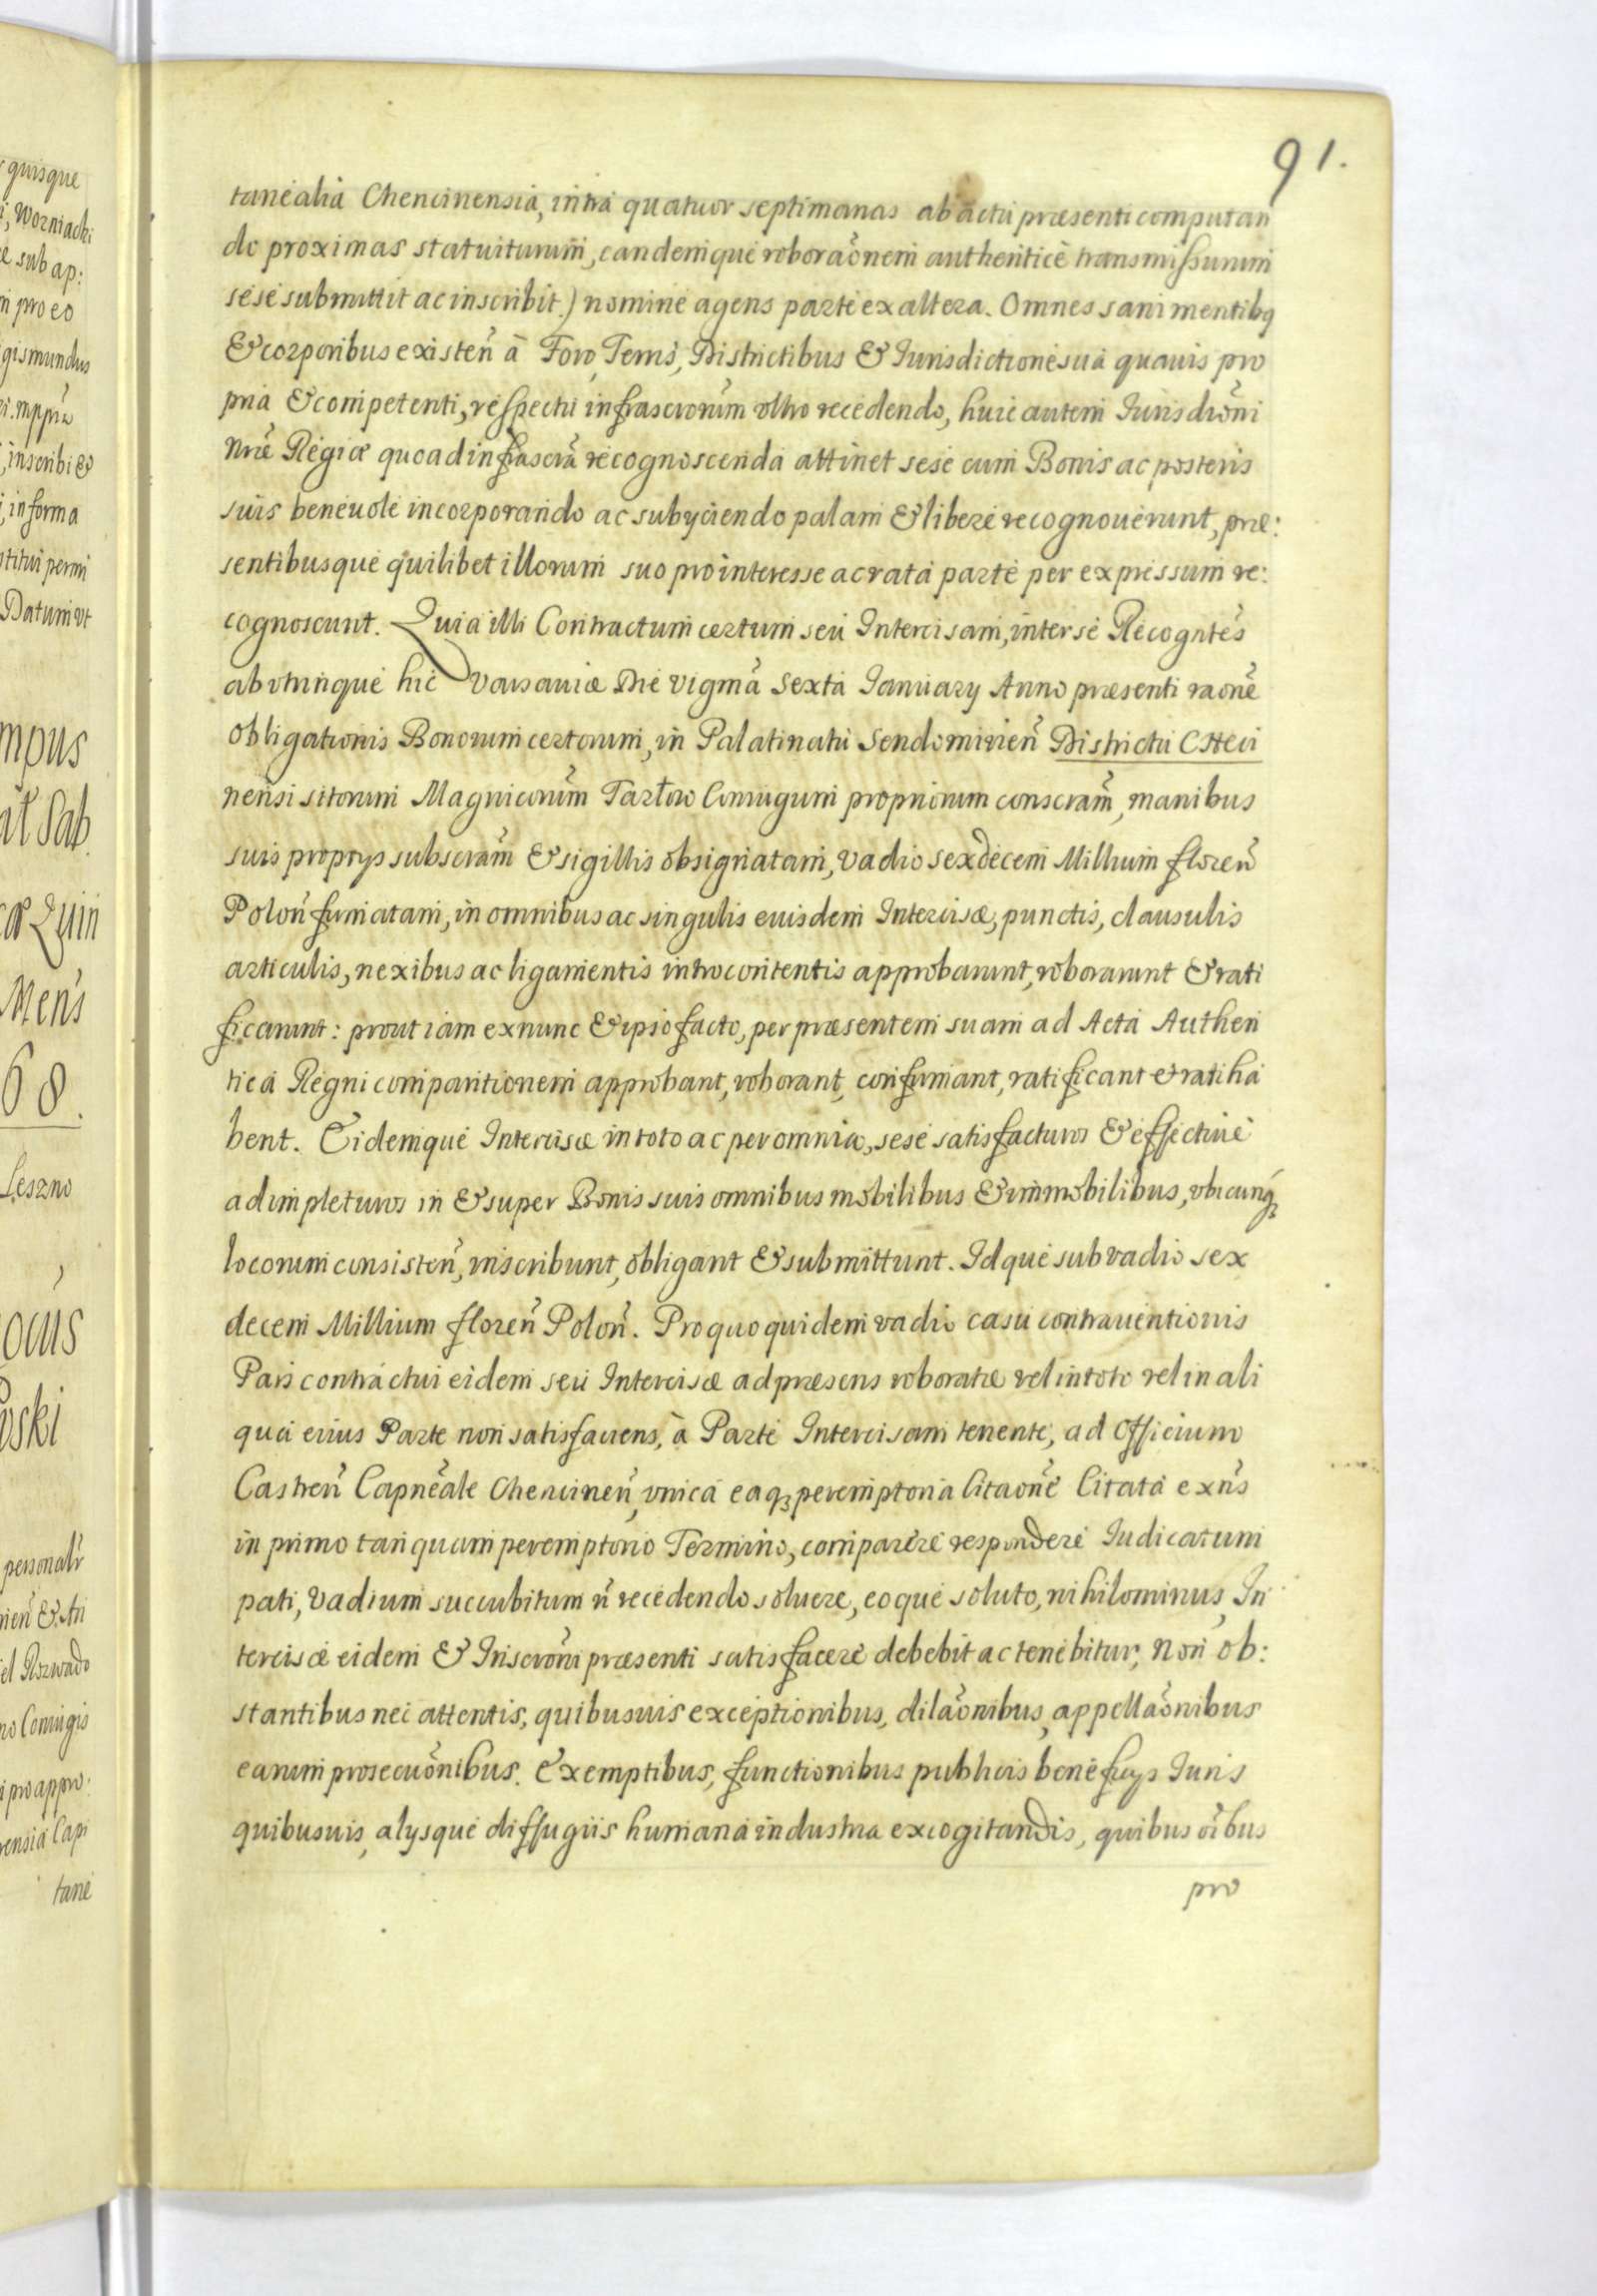 91.
tanealia Chencinensia, intra quatuor septimanas ab actu præsenti computan
do proximas statuiturum, eandemque roboraõnem authenticè transmissurum
sese submittit ac inscribit.) nomine agens parte ex altera. Omnes sani mentibq
& corporibus existeñ à Foro, Terris, Districtibus & Iurisdictione sua quauis pro
pria & competenti, respectu infrascrorum ultro recedendo, huic autem Iurisdiõni
Nræ Regiæ quoad infrascra recognoscenda attinet sese cum Bonis ac posteris
suis beneuole incorporando ac subyciendo palam & libere recognouerunt, præ:
sentibusque quilibet illorum suo pro interesse ac rata parte per expressum re:
cognoscunt. Quia illi Contractum certum seu Intercisam, inter se Recogntes
ab utrinque hic Varsauiæ Die vigma Sexta January Anno præsenti raone
obligationis Bonorum certorum, in Palatinatu Sendomirieñ Districtu CHeci
nensi sitorum Magnicorum Tarłow Coniugum propriorum conscram, manibus
suis proprys subscram & sigillis obsignatam, vadio sexdecem Millium floreñ
Poloñ firmatam, in omnibus ac singulis eiusdem Intercisæ, punctis, clausulis
articulis, nexibus ac ligamentis introcontentis approbarunt, roborarunt & rati
ficarunt: prout iam ex nunc & ipso facto, per præsentem suam ad Acta Authen
tica Regni comparitionem approbant, roborant, confirmant, ratificant et ratiha
bent. Eidemque Intercisæ in toto ac per omnia, sese satisfacturos & effectiue
adimpleturos in & super Bonis suis omnibus mobilibus & immobilibus, ubicunq
locorum consisteñ, inscribunt, obligant & submittunt. Idque sub vadio sex
decem Millium floreñ Poloñ. Pro quo quidem vadio casu contrauentionis
Pars contractui eidem seu Intercisæ ad præsens roboratæ vel in toto vel in ali
qua eius Parte non satisfaciens, à Parte Intercisam tenente, ad Officium
Castreñ Capneale Chencineñ, unica eaq peremptoria Citaone Citata exns
in primo tanquam peremptorio Termino, comparere respondere Iudicatum
pati, Vadium succubitum ñ recedendo soluere, eoque soluto, nihilominus, In
tercisæ eidem & Inscroni præsenti satisfacere debebit ac tenebitur, Non ob:
stantibus nec attentis, quibusuis exceptionibus, dilaõnibus, appellaõnibus
earum prosecuõnibus. Exemptibus, functionibus publicis beneficys Iuris
quibusuis, alysque diffugiis humana industria excogitandis, quibus oibus
pro
quisque
Worniacki
sub ap:
pro eo
gismundus
inscribi &
in forma
Datum ut
mpus
Sab.
Mens
68.
Leszno
Coniugis
pro appro:
tane